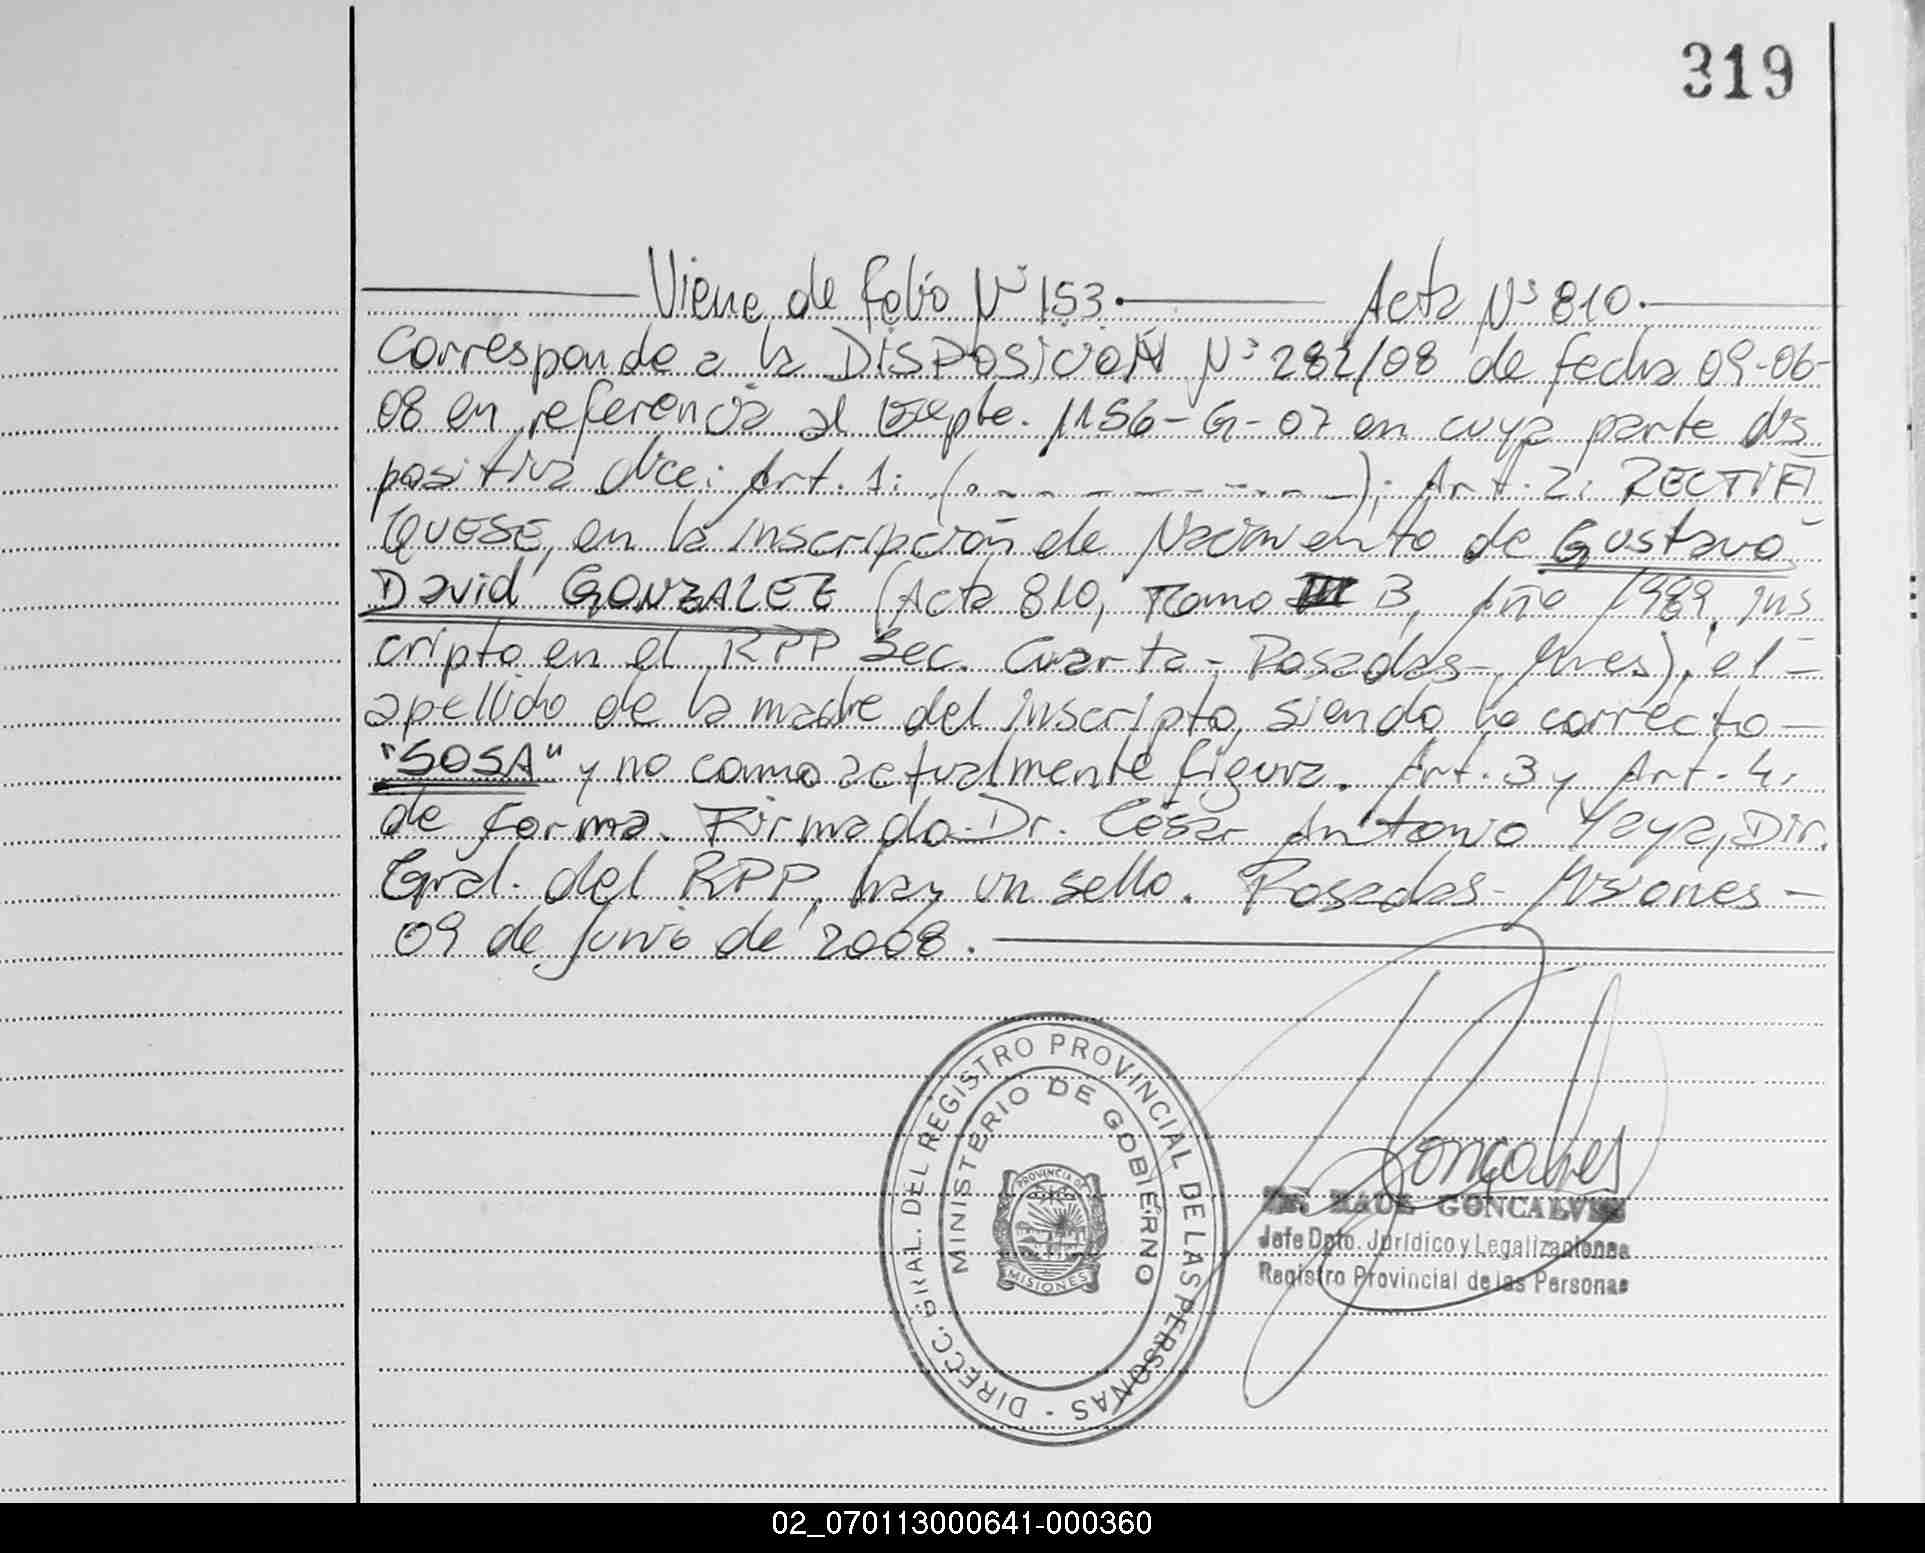 319
Viene de folio Nº 153. Acta Nº 810.
Corresponde a la DISPOSICIÓN Nº 282/08 de fecha 09-06-
08 en referencia al Expte. 1156-G-07 en cuya parte dis
positiva dice: Art. 1: (. - - - - - - - - - -); Art. 2: RECTIFI
QUESE, en la inscripción de Nacimiento de Gustavo
David GONZALEZ (Acta 810, Tomo 3, Año 1989, ins
cripto en el RPP Sec. Cuarta - Posadas - Mnes), el -
apellido de la madre del inscripto, siendo lo correcto -
"SOSA" y no como actualmente figura. Art. 3 y Art. 4:
de forma. Firmado. Dr. César Antonio Yaya, Dir.
Gral. del RPP, hay un sello. Posadas - Misiones -
09 de Junio de 2008.
DIRECC. GRAL. DEL REGISTRO PROVINCIAL DE LAS PERSONAS -
MINISTERIO DE GOBIERNO
PROVINCIA DE
MISIONES
Gonçalves
RAUL GONCALVES
Jefe Dpto. Jurídico y Legalizaciones
Registro Provincial de las Personas
02_070113000641-000360